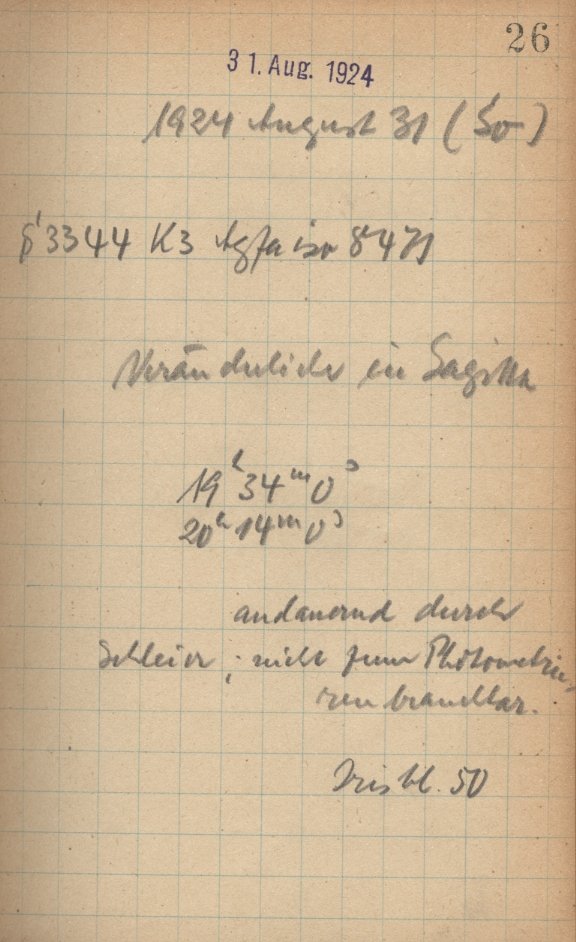 26
31. Aug. 1924
1924 August 31 (So)
3344 K3 Agfa iso 8471
Veränderliche in Sagitta
19h 34m 0s
20h 14m 0s
andauernd durch
Schleier; nicht zum Photometrie-
ren brauchbar.
Irisbl. 50